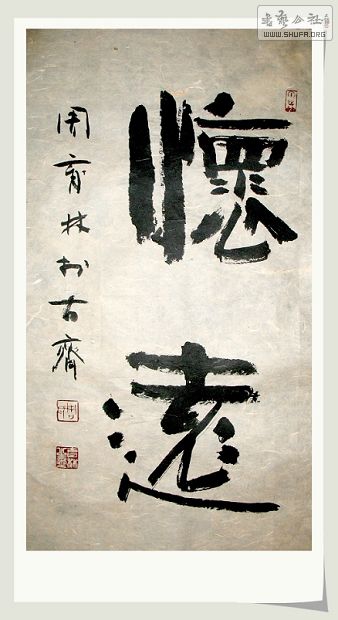 書藝公社
WWW.SHUFA.ORG
懷遠
周育林于古齋